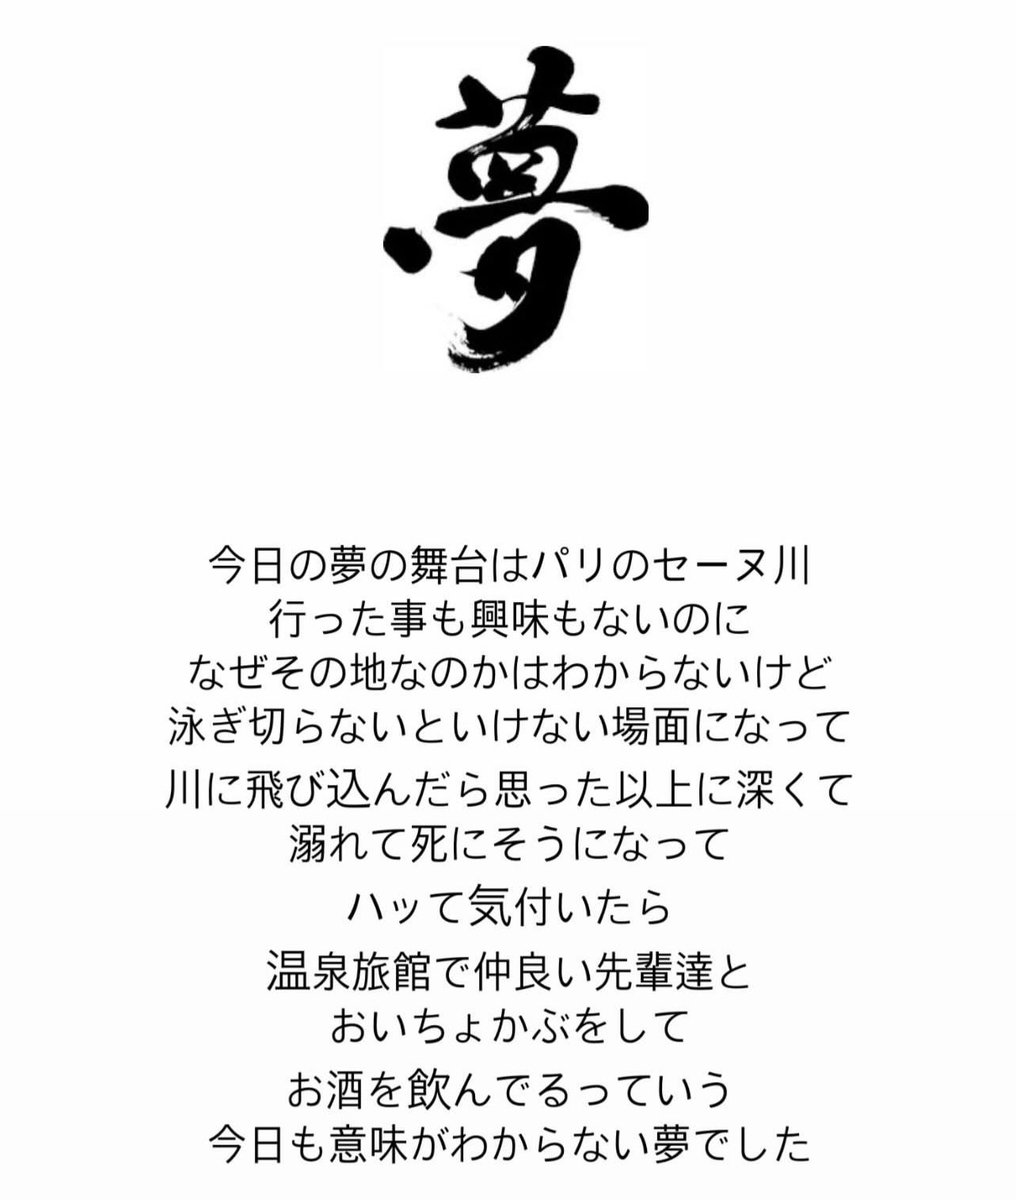 夢
今日の夢の舞台はパリのセーヌ川
行った事も興味もないのに
なぜその地なのかはわからないけど
泳ぎ切らないといけない場面になって
川に飛び込んだら思った以上に深くて
溺れて死にそうになって
ハッて気付いたら
温泉旅館で仲良い先輩達と
おいちょかぶをして
お酒を飲んでるっていう
今日も意味がわからない夢でした